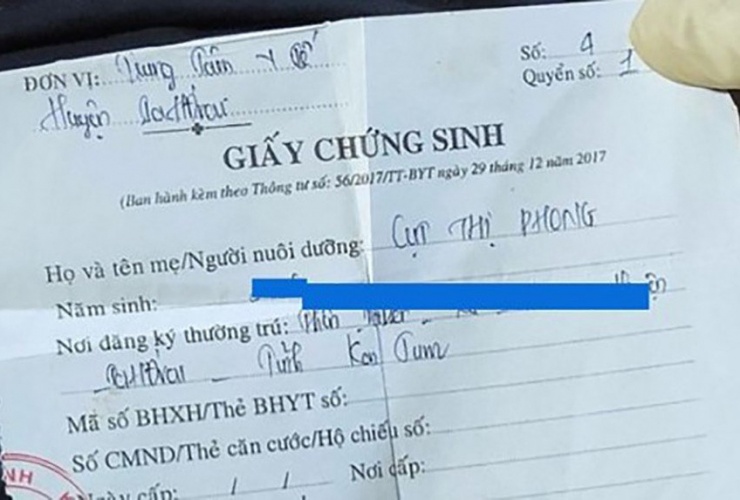 ĐƠN VỊ: Trung Tâm Y tế
Huyện
Số: 4
Quyển số: 1
GIẤY CHỨNG SINH
(Ban hành kèm theo Thông tư số: 56/2017/TT-BYT ngày 29 tháng 12 năm 2017
Họ và tên mẹ/Người nuôi dưỡng: Cụt THỊ PHONG
Năm sinh:
Nơi đăng ký thường trú:
Tỉnh Kon Tum
Mã số BHXH/Thẻ BHYT số:
Số CMND/Thẻ căn cước/Hộ chiếu số:
Ngày cấp: / / Nơi cấp:
NH